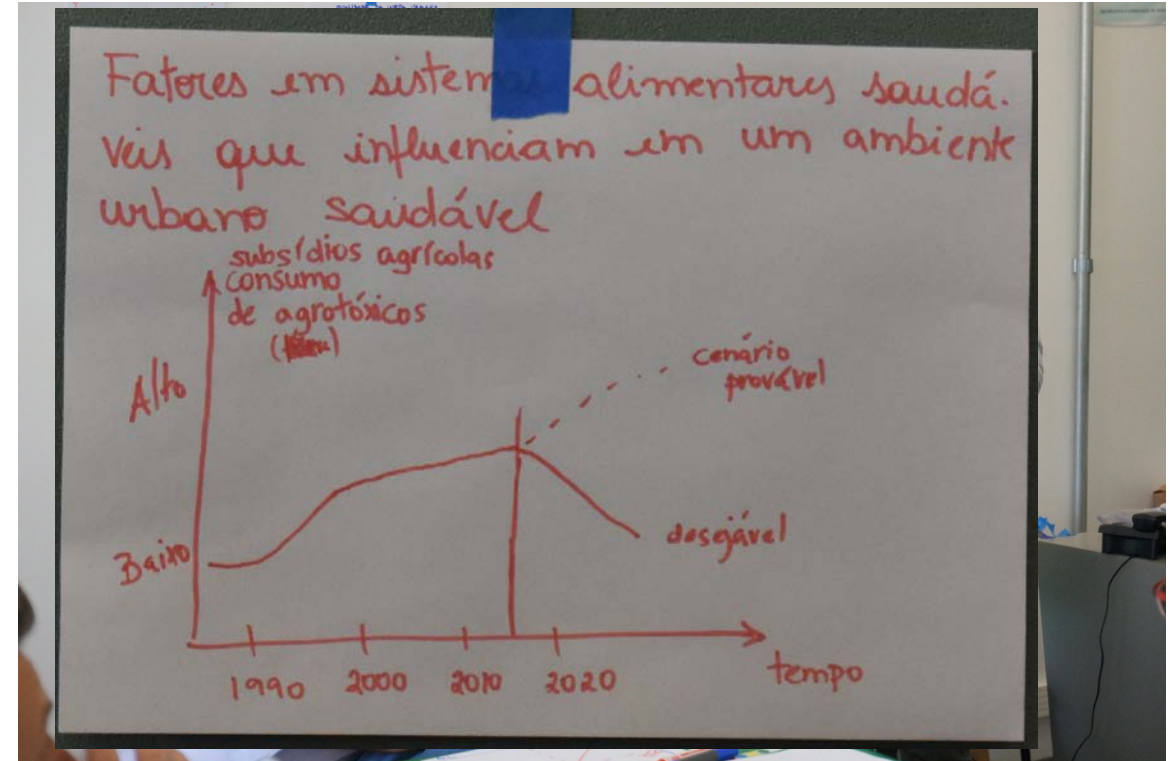 Fatores em sistemas alimentares saudá.
veis que influenciam em um ambiente
urbano saudável
subsídios agrícolas
consumo
de agrotóxicos
Alto
cenário
provável
desejável
Baixo
1990 2000 2010 2020
tempo